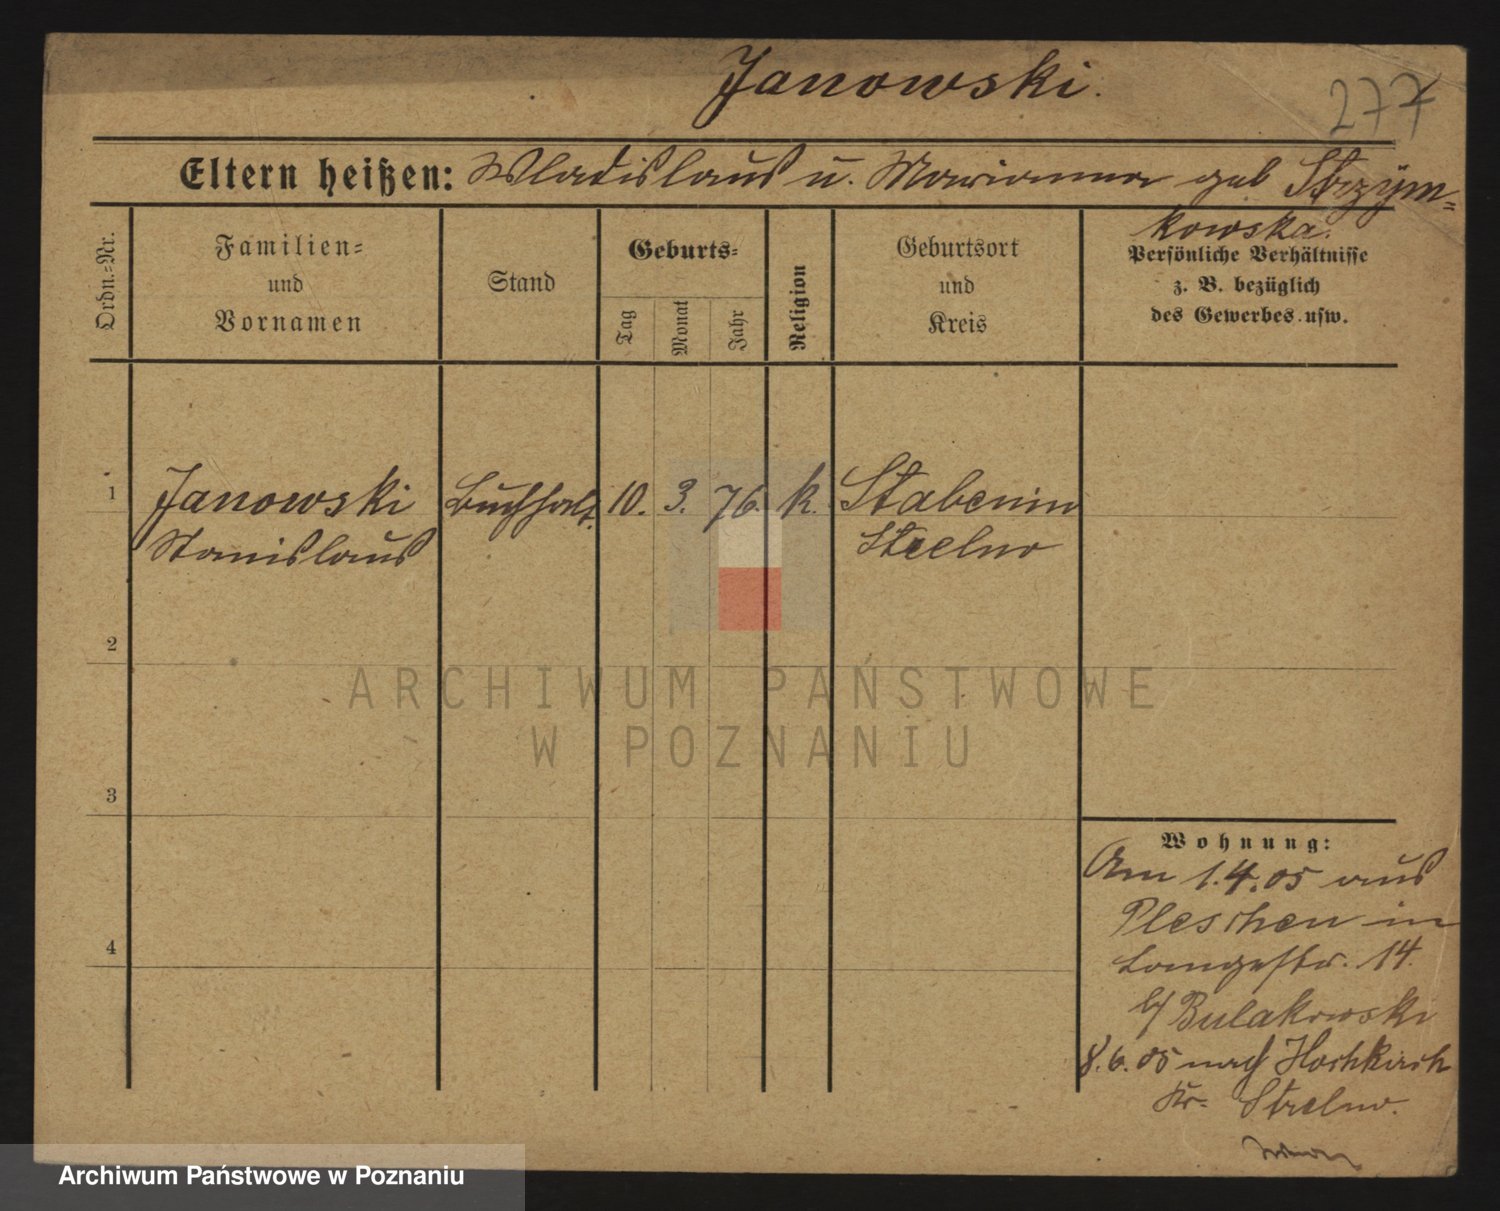 Janowski.
277
Eltern heißen: Wladislaus u. Marianna geb Strzym=
kowska.
Ordn.=Nr.
Familien=
und
Vornamen
Stand
Geburts=
Tag
Monat
Jahr
Religion
Geburtsort
und
Kreis
Persönliche Verhältnisse
z. B. bezüglich
des Gewerbes usw.
1
Janowski
Stanislaus
Buchhalt.
10. 3. 76. k.
Strelno
2
3
4
Wohnung:
Am 1.4.05 aus
Pleschen in
Langestr. 14.
b/ Bulakowski
8.6.05 nach Hochkirch
Kr. Strelno.
ARCHIWUM PAŃSTWOWE
W POZNANIU
Archiwum Państwowe w Poznaniu